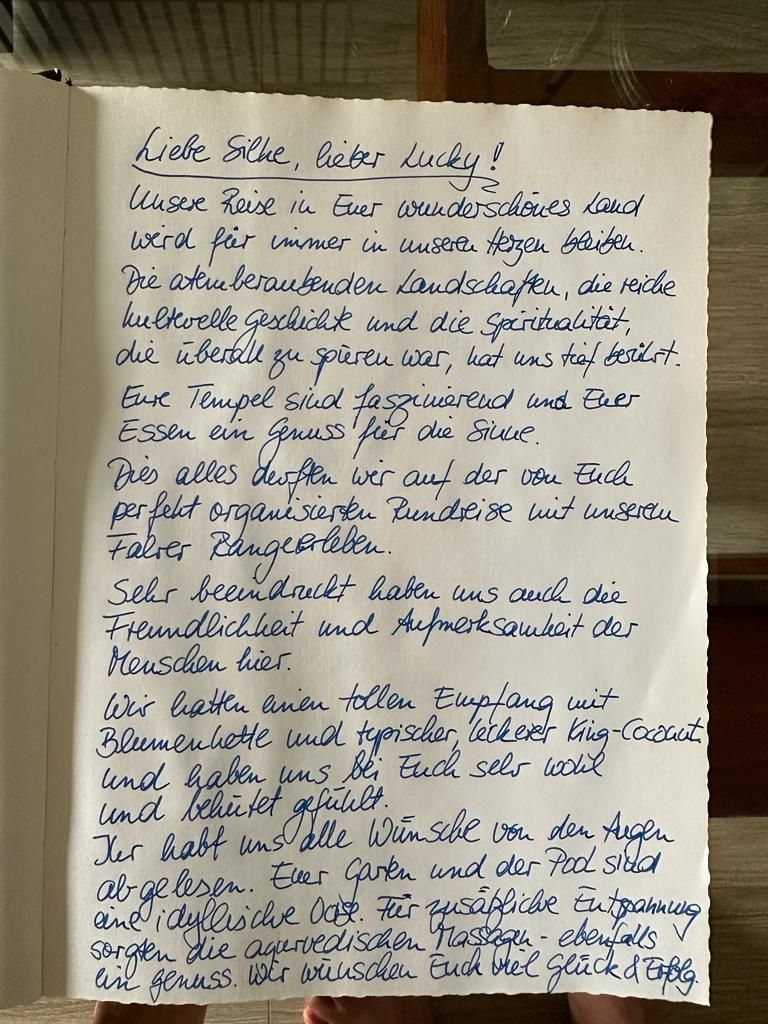 Liebe Silke, lieber Lucky!
Unsere Reise in Euer wunderschönes Land
wird für immer in unseren Herzen bleiben.
Die atemberaubenden Landschaften, die reiche
kulturelle Geschichte und die Spiritualität,
die überall zu spüren war, hat uns tief berührt.
Eure Tempel sind faszinierend und Euer
Essen ein Genuss für die Sinne.
Dies alles durften wir auf der von Euch
perfekt organisierten Rundreise mit unserem
Fahrer Range erleben.
Sehr beeindruckt haben uns auch die
Freundlichkeit und Aufmerksamkeit der
Menschen hier.
Wir hatten einen tollen Empfang mit
Blumenkette und typischer, leckerer King-Coconut
und haben uns bei Euch sehr wohl
und behütet gefühlt.
Ihr habt uns alle Wünsche von den Augen
abgelesen. Euer Garten und der Pool sind
eine idyllische Oase. Für zusätzliche Entspannung
sorgten die ayurvedischen Massagen - ebenfalls
ein Genuss. Wir wünschen Euch viel Glück & Erfolg.